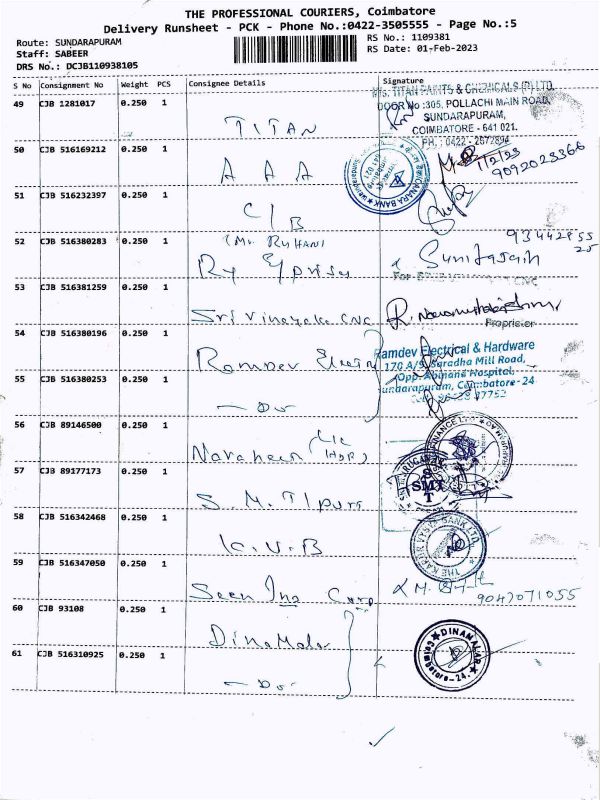 THE PROFESSIONAL COURIERS, Coimbatore
Delivery Runsheet - PCK - Phone No.:0422-3505555 - Page No.:5
Route: SUNDARAPURAM
Staff: SABEER
DRS No.: DCJB110938105
RS No.: 1109381
RS Date: 01-Feb-2023
S No Consignment No Weight PCS Consignee Details Signature
49 CJB 1281017 0.250 1 TITAN
M/s. TITAN PAINTS & CHEMICALS (P) LTD.
DOOR No :305, POLLACHI MAIN ROAD,
SUNDARAPURAM,
COIMBATORE - 641 021.
PH. : 0422 - 2672894
50 CJB 516169212 0.250 1 A A A
CANARA BANK
1/2/23
9092023366
51 CJB 516232397 0.250 1 C/B
52 CJB 516380283 0.250 1 (Mr. RUHANI
Ry Eprise
Sunitasain
93442855
25
53 CJB 516381259 0.250 1 Sri Vinayaka CNC
For
CNC
Proprietor
54 CJB 516380196 0.250 1 Ramdev
Ramdev Electrical & Hardware
170 A/5, Saradha Mill Road,
Opp. Abinand Hospital,
Sundarapuram, Coimbatore - 24
55 CJB 516380253 0.250 1 - Do
56 CJB 89146500 0.250 1
57 CJB 89177173 0.250 1 S. M. T
SMT
58 CJB 516342468 0.250 1 K.V.B
THE KARUR VYSYA BANK LTD.
59 CJB 516347050 0.250 1 Seen Ing Corp
9047071055
60 CJB 93108 0.250 1 DinaMalar
DINAMALAR
Coimbatore - 24.
61 CJB 516310925 0.250 1 - Do